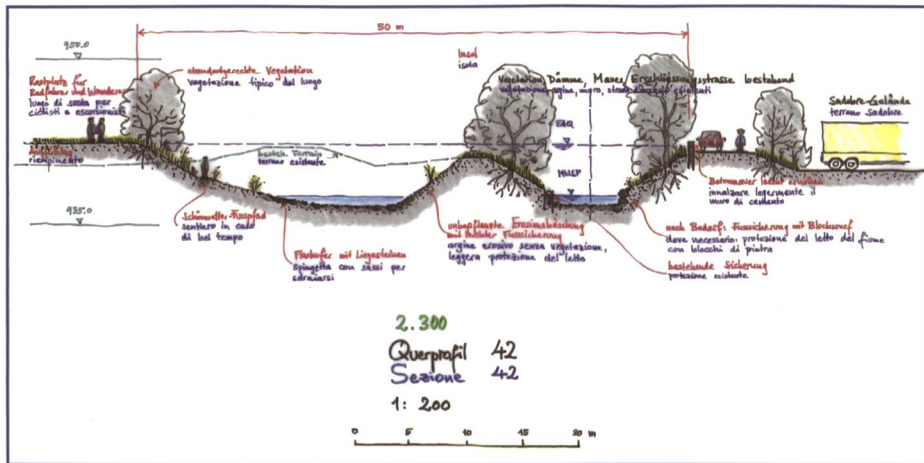 50 m
950.0
Rastplatz für
Radfahrer und Wanderer
luogo di sosta per
ciclisti e escursionisti
standortgerechte Vegetation
vegetazione tipico del luogo
Insel
isola
Vegetation, Dämme, Mauer, Erschliessungsstrasse bestehend
Sadobre-Gelände
terreno Sadobre
riempimento
besteh. Terrain
terreno esistente
EHQ
935.0
Schönwetter-Fusspfad
sentiero in caso
di bel tempo
Flachufer mit Liegesteinen
spiagetta con sassi per
sdraiarsi
unbepflanzte Erosionsböschung
mit leichter Fusssicherung
argine erosivo senza vegetazione,
leggera protezione del letto
Betonmauer leicht erhöhen
innalzare legermente il
muro di cemento
nach Bedarf: Fusssicherung mit Blockwurf
dove necessario: protezione del letto del fiume
con blocchi di pietra
bestehende Sicherung
protezione esistente
2.300
Querprofil 42
Sezione 42
1: 200
0 5 10 15 20 m